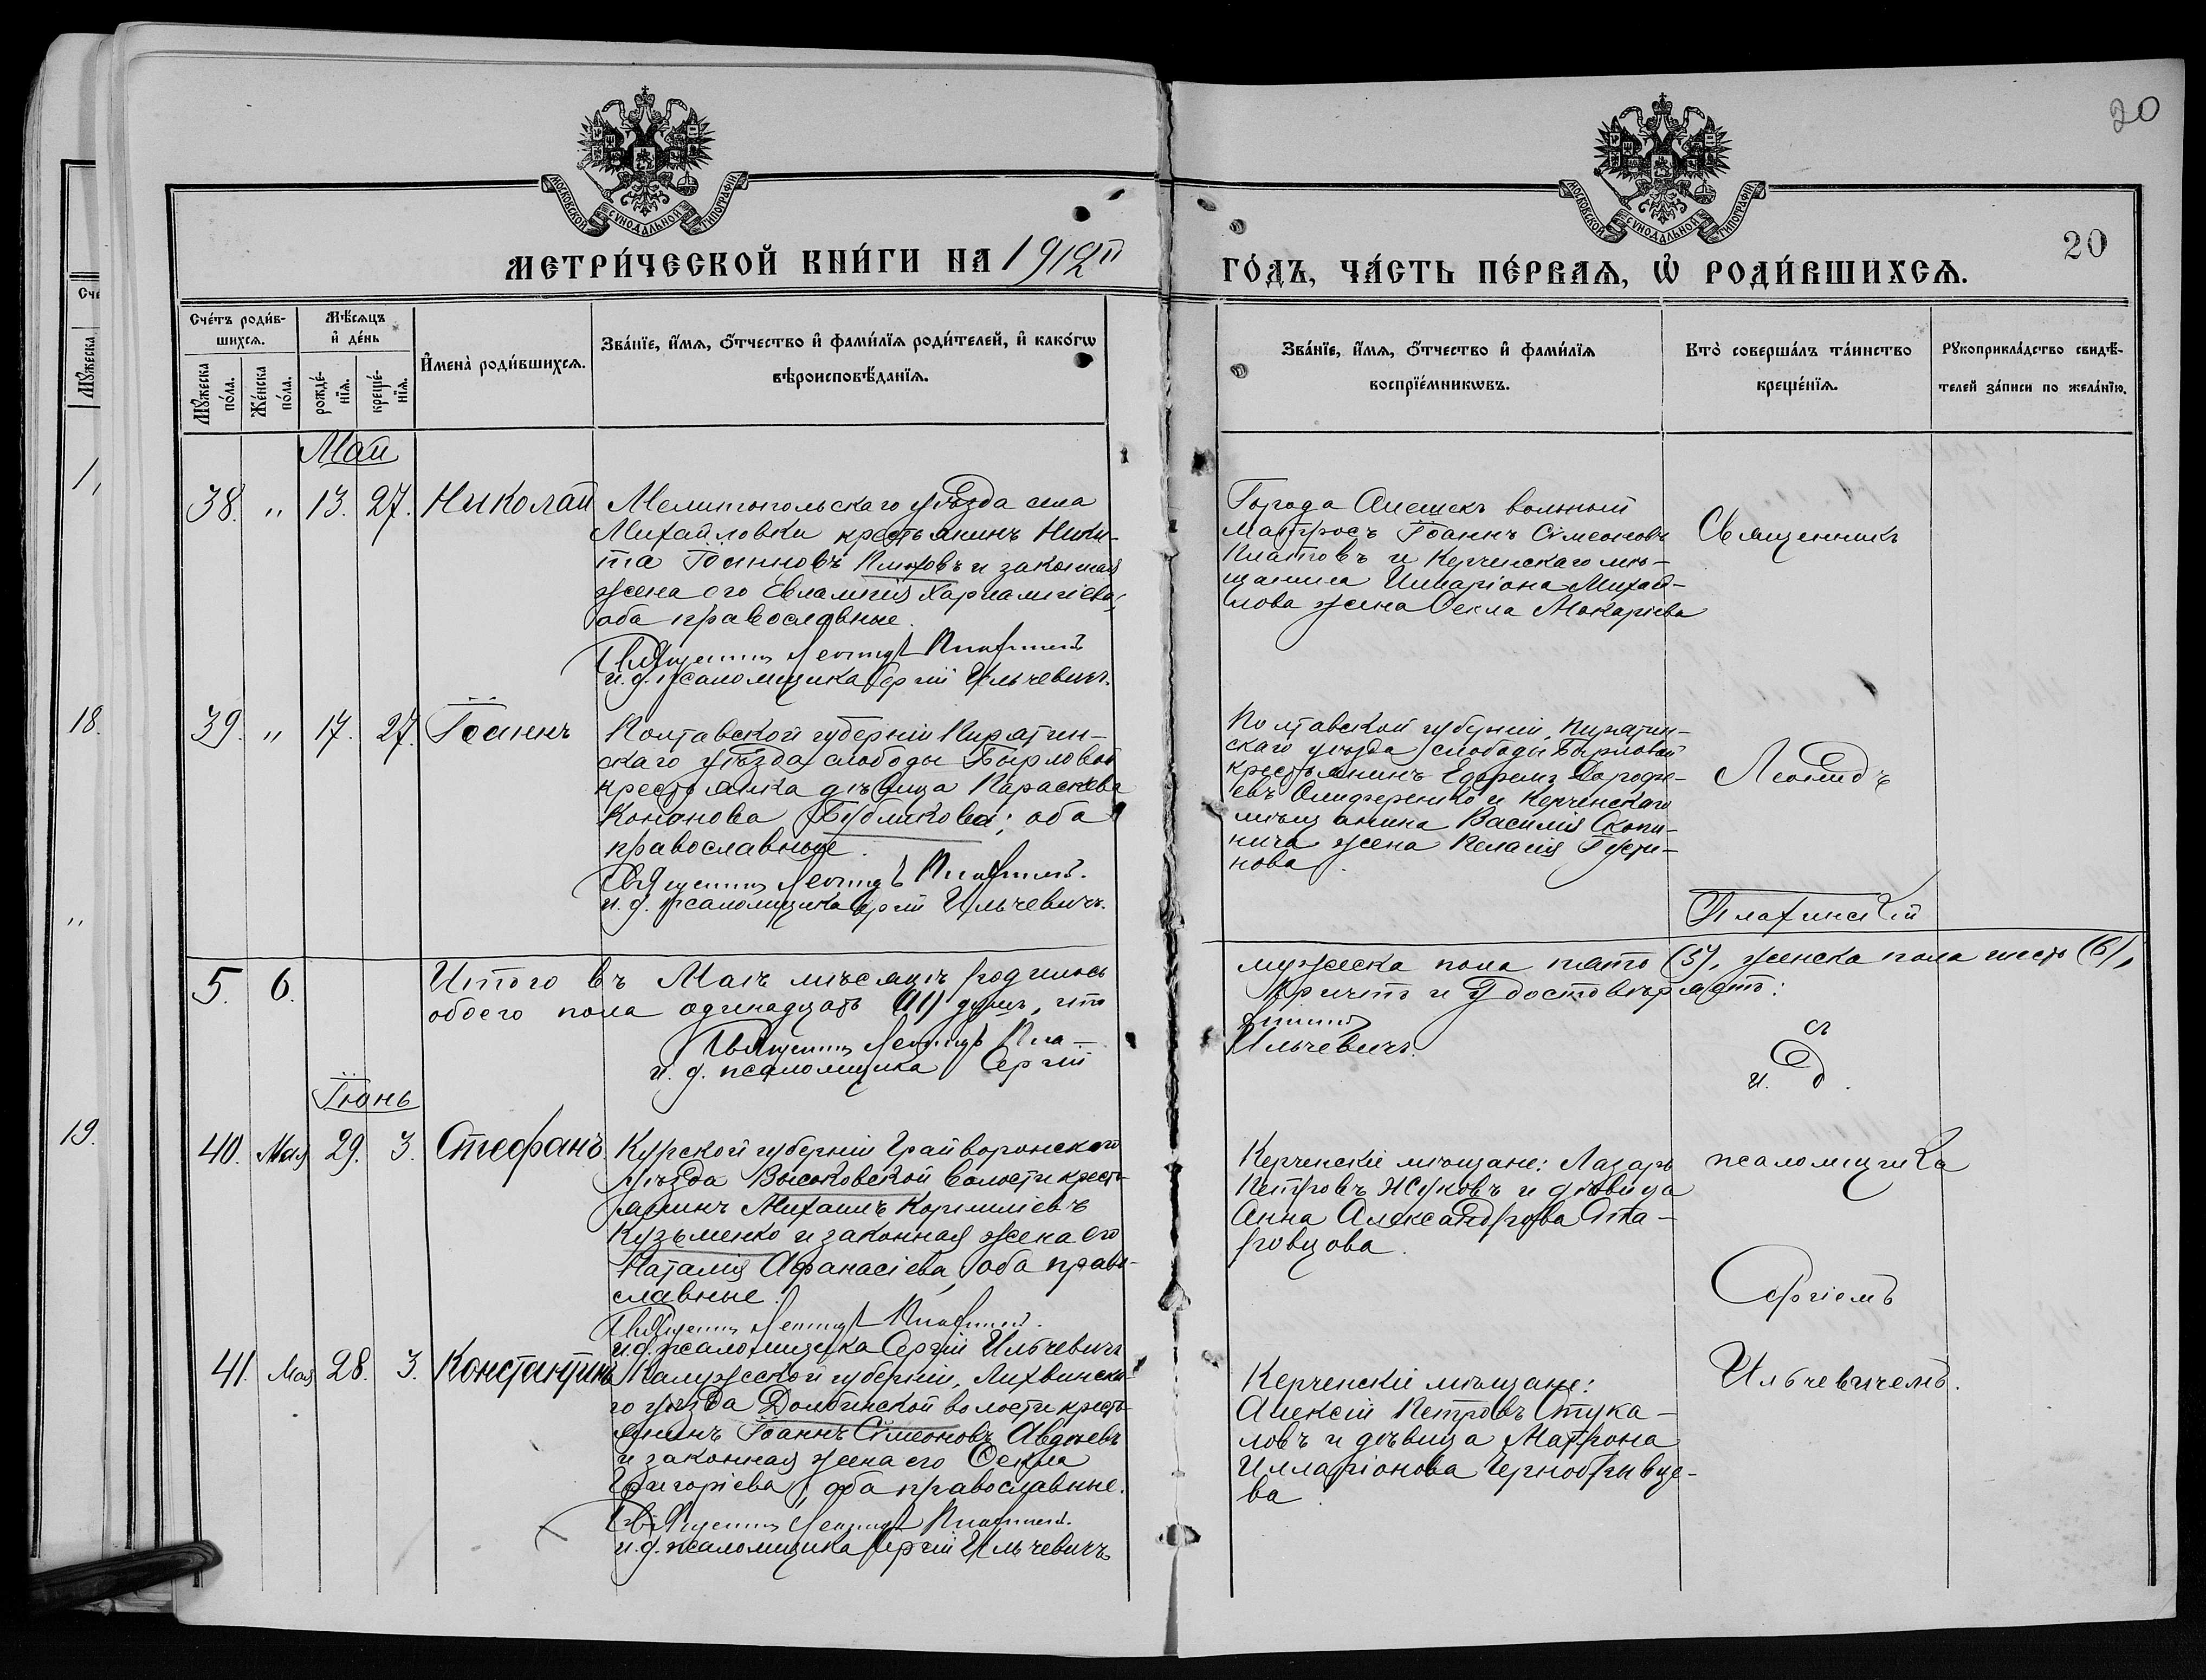 20
МОСКОВСКОЙ СѴНОДАЛЬНОЙ ТИПОГРАФІИ
МОСКОВСКОЙ СѴНОДАЛЬНОЙ ТИПОГРАФІИ
МЕТРИ́ЧЕСКОЙ КНИ́ГИ НА 1912й
ГО́ДЪ, ЧА́СТЬ ПЕ́РВАѦ, Ѽ РОДИ́ВШИХСѦ.
20
Сче́тъ роди́в-
шихсѧ.
Мꙋ́жеска по́ла.
Же́нска по́ла.
Мѣ́сѧцъ
и҆ де́нь
рожде́-
нїѧ.
креще́-
нїѧ.
И҆мена̀ роди́вшихсѧ.
Зва́нїе, и҆́мѧ, ѻ҆́тчество и҆ фами́лїѧ роди́телей, и҆ како́гѡ
вѣроисповѣ́данїѧ.
Зва́нїе, и҆́мѧ, ѻ҆́тчество и҆ фами́лїѧ
воспрїе́мникѡвъ.
Кто̀ соверша́лъ та́инство
креще́нїѧ.
Рꙋкоприкла́дство свидѣ́-
телей за́писи по жела́нїю.
Май
38. " 13. 27. Николай
Мелитопольскаго уѣзда села
Михайловки крестьянинъ Ники-
та Іоанновъ и законная
жена его Евлампія Харлампіева,
оба православные.
Священникъ Леонидъ Платинскій
и. д. псаломщика Сергій Ильчевичъ.
Города Алешекъ вольный
матросъ Іоаннъ Сімеоновъ
Платовъ и Керченскаго мѣ-
щанина Илларіона Михай-
лова жена Ѳекла Макаріева
Священникъ
39. " 17. 27. Іоаннъ
Полтавской губерніи Пирятин-
скаго уѣзда слободы Бырловой
крестьянка дѣвица Параскева
Кононова Бубликова; оба
православные.
Священникъ Леонидъ Платинскій.
и. д. псаломщика Сергій Ильчевичъ.
Полтавской губерніи, Пирятин-
скаго уѣзда слободы Бырловой
крестьянинъ Ефремъ Дороѳе-
евъ и Керченскаго
мѣщанина Василія Скопи-
нича жена Пелагія Густи-
нова.
Леонидъ
Платинскій
5. 6.
Итого въ Маѣ мѣсяцѣ родилось
обоего пола одинадцать (11) душъ, что
мужеска пола пять (5), женска пола шесть (6),
причтъ и удостовѣряетъ:
Священникъ Леонидъ Пла-
тинскій
и. д. псаломщика Сергій
Ильчевичъ.
съ
и. д.
Іюнь
40. Мая 29. 3. Стефанъ
Курской губерніи Грайворонскаго
уѣзда Высоковской волости кресть-
янинъ Михаилъ Корниліевъ
Кузьменко и законная жена его
Наталія Аѳанасіева, оба право-
славные.
Священникъ Леонидъ Платинскій.
и. д. псаломщика Сергій Ильчевичъ
Керченскіе мѣщане: Лазарь
Петровъ Жуковъ и дѣвица
Анна Александрова Ста-
ровцова.
псаломщика
Сергіемъ
41. Мая 28. 3. Константинъ
Калужской губерніи, Лихвинска-
го уѣзда Долбинской волости кресть-
янинъ Іоаннъ Сімеоновъ Авдѣевъ
и законная жена его Ѳекла
Григоріева, оба православные.
Священникъ Леонидъ Платинскій.
и. д. псаломщика Сергій Ильчевичъ
Керченскіе мѣщане:
Алексій Петровъ Стука-
ловъ и дѣвица Матрона
Илларіонова Чернобривце-
ва.
Ильчевичемъ.
Мꙋ́жеска
1,
18.
"
19.